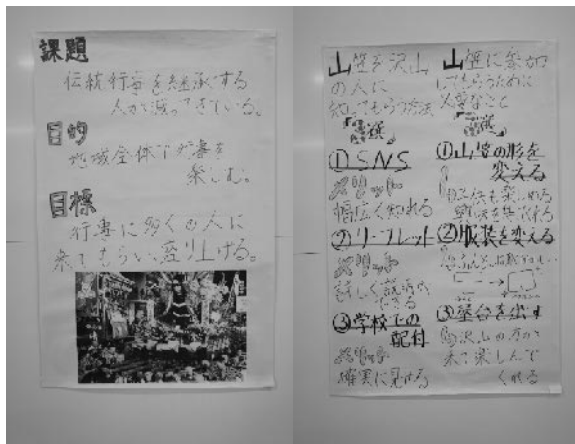 課題
伝統行事を継承する
人が減ってきている。
目的
地域全体で行事を
楽しむ。
目標
行事に多くの人に
来てもらい、盛り上げる。
山笠を沢山
の人に
知ってもらう方法
3選
①SNS
メリット
幅広く知れる
②リーフレット
メリット
詳しく説明が
できる
③学校での
配付
メリット
確実に見せる
山笠に参加
してもらうために
大事なこと
3選
①山笠の形を
変える
②服装を変える
③屋台を出す
沢山の方が
来て楽しんで
くれる